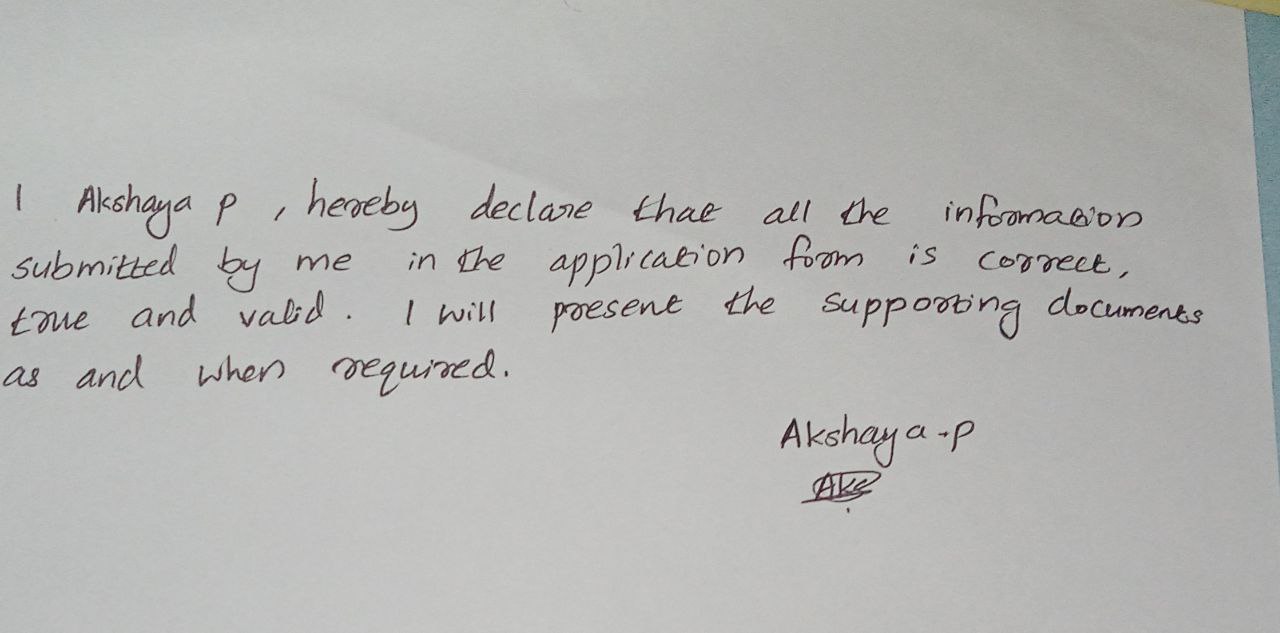 I Akshaya P, hereby declare that all the information
submitted by me in the application form is correct,
true and valid. I will present the supporting documents
as and when required.
Akshaya.P